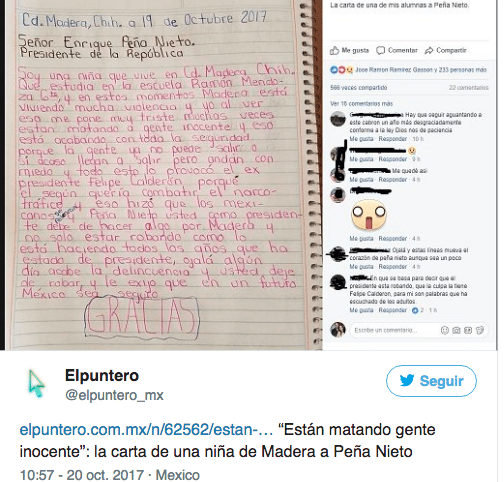 Cd. Madera, Chih. a 19 de Octubre 2017
Señor Enrique Peña Nieto.
Presidente de la República
Soy una niña que vive en Cd. Madera Chih.
Que estudia en la escuela Ramón Mendo-
za Cᵗᵒ, y en estos momentos Madera está
viviendo mucha violencia y yo al ver
eso me pone muy triste muchas veces
estan matando a gente inocente y eso
esta acabando con toda la seguridad.
porque la gente ya no puede salir o
si acaso llegan a salir pero andan con
miedo y todo esto lo provocó el ex
presidente Felipe Calderón porqué
el según quería combatir el narco-
trafico, eso hizo que los mexi-
canos Peña Nieto usted como presiden-
te debe de hacer algo por Madera y
no solo estar robando como lo
está haciendo todos los años que ha
estado de presidente, ojalá algún
día acabe la delincuencia y usted deje
de robar, y le exijo que en un futuro
México sea seguro
GRACIAS
La carta de una de mis alumnas a Peña Nieto.
Me gusta Comentar Compartir
Jose Ramon Ramirez Gasson y 233 personas más
566 veces compartido 22 comentarios
Ver 16 comentarios más
Hay que seguir aguantando a
este cabron un año más desgraciadamente
conforme a la ley Dios nos de paciencia
Me gusta · Responder · 10 h
Me gusta · Responder · 9 h
Me quedé así
Me gusta · Responder · 4 h
Me gusta · Responder · 4 h
Ojalá y estas líneas mueva el
corazón de peña nieto aunque sea un poco
Me gusta · Responder · 4 h
En que se basa para decir que el
presidente esta robando, que la culpa la tiene
Felipe Calderon, para mi son palabras que ha
escuchado de los adultos
Me gusta · Responder · 2 · 1 h
Escribe un comentario...
Elpuntero
@elpuntero_mx
Seguir
elpuntero.com.mx/n/62562/estan-… “Están matando gente
inocente”: la carta de una niña de Madera a Peña Nieto
10:57 - 20 oct. 2017 · Mexico